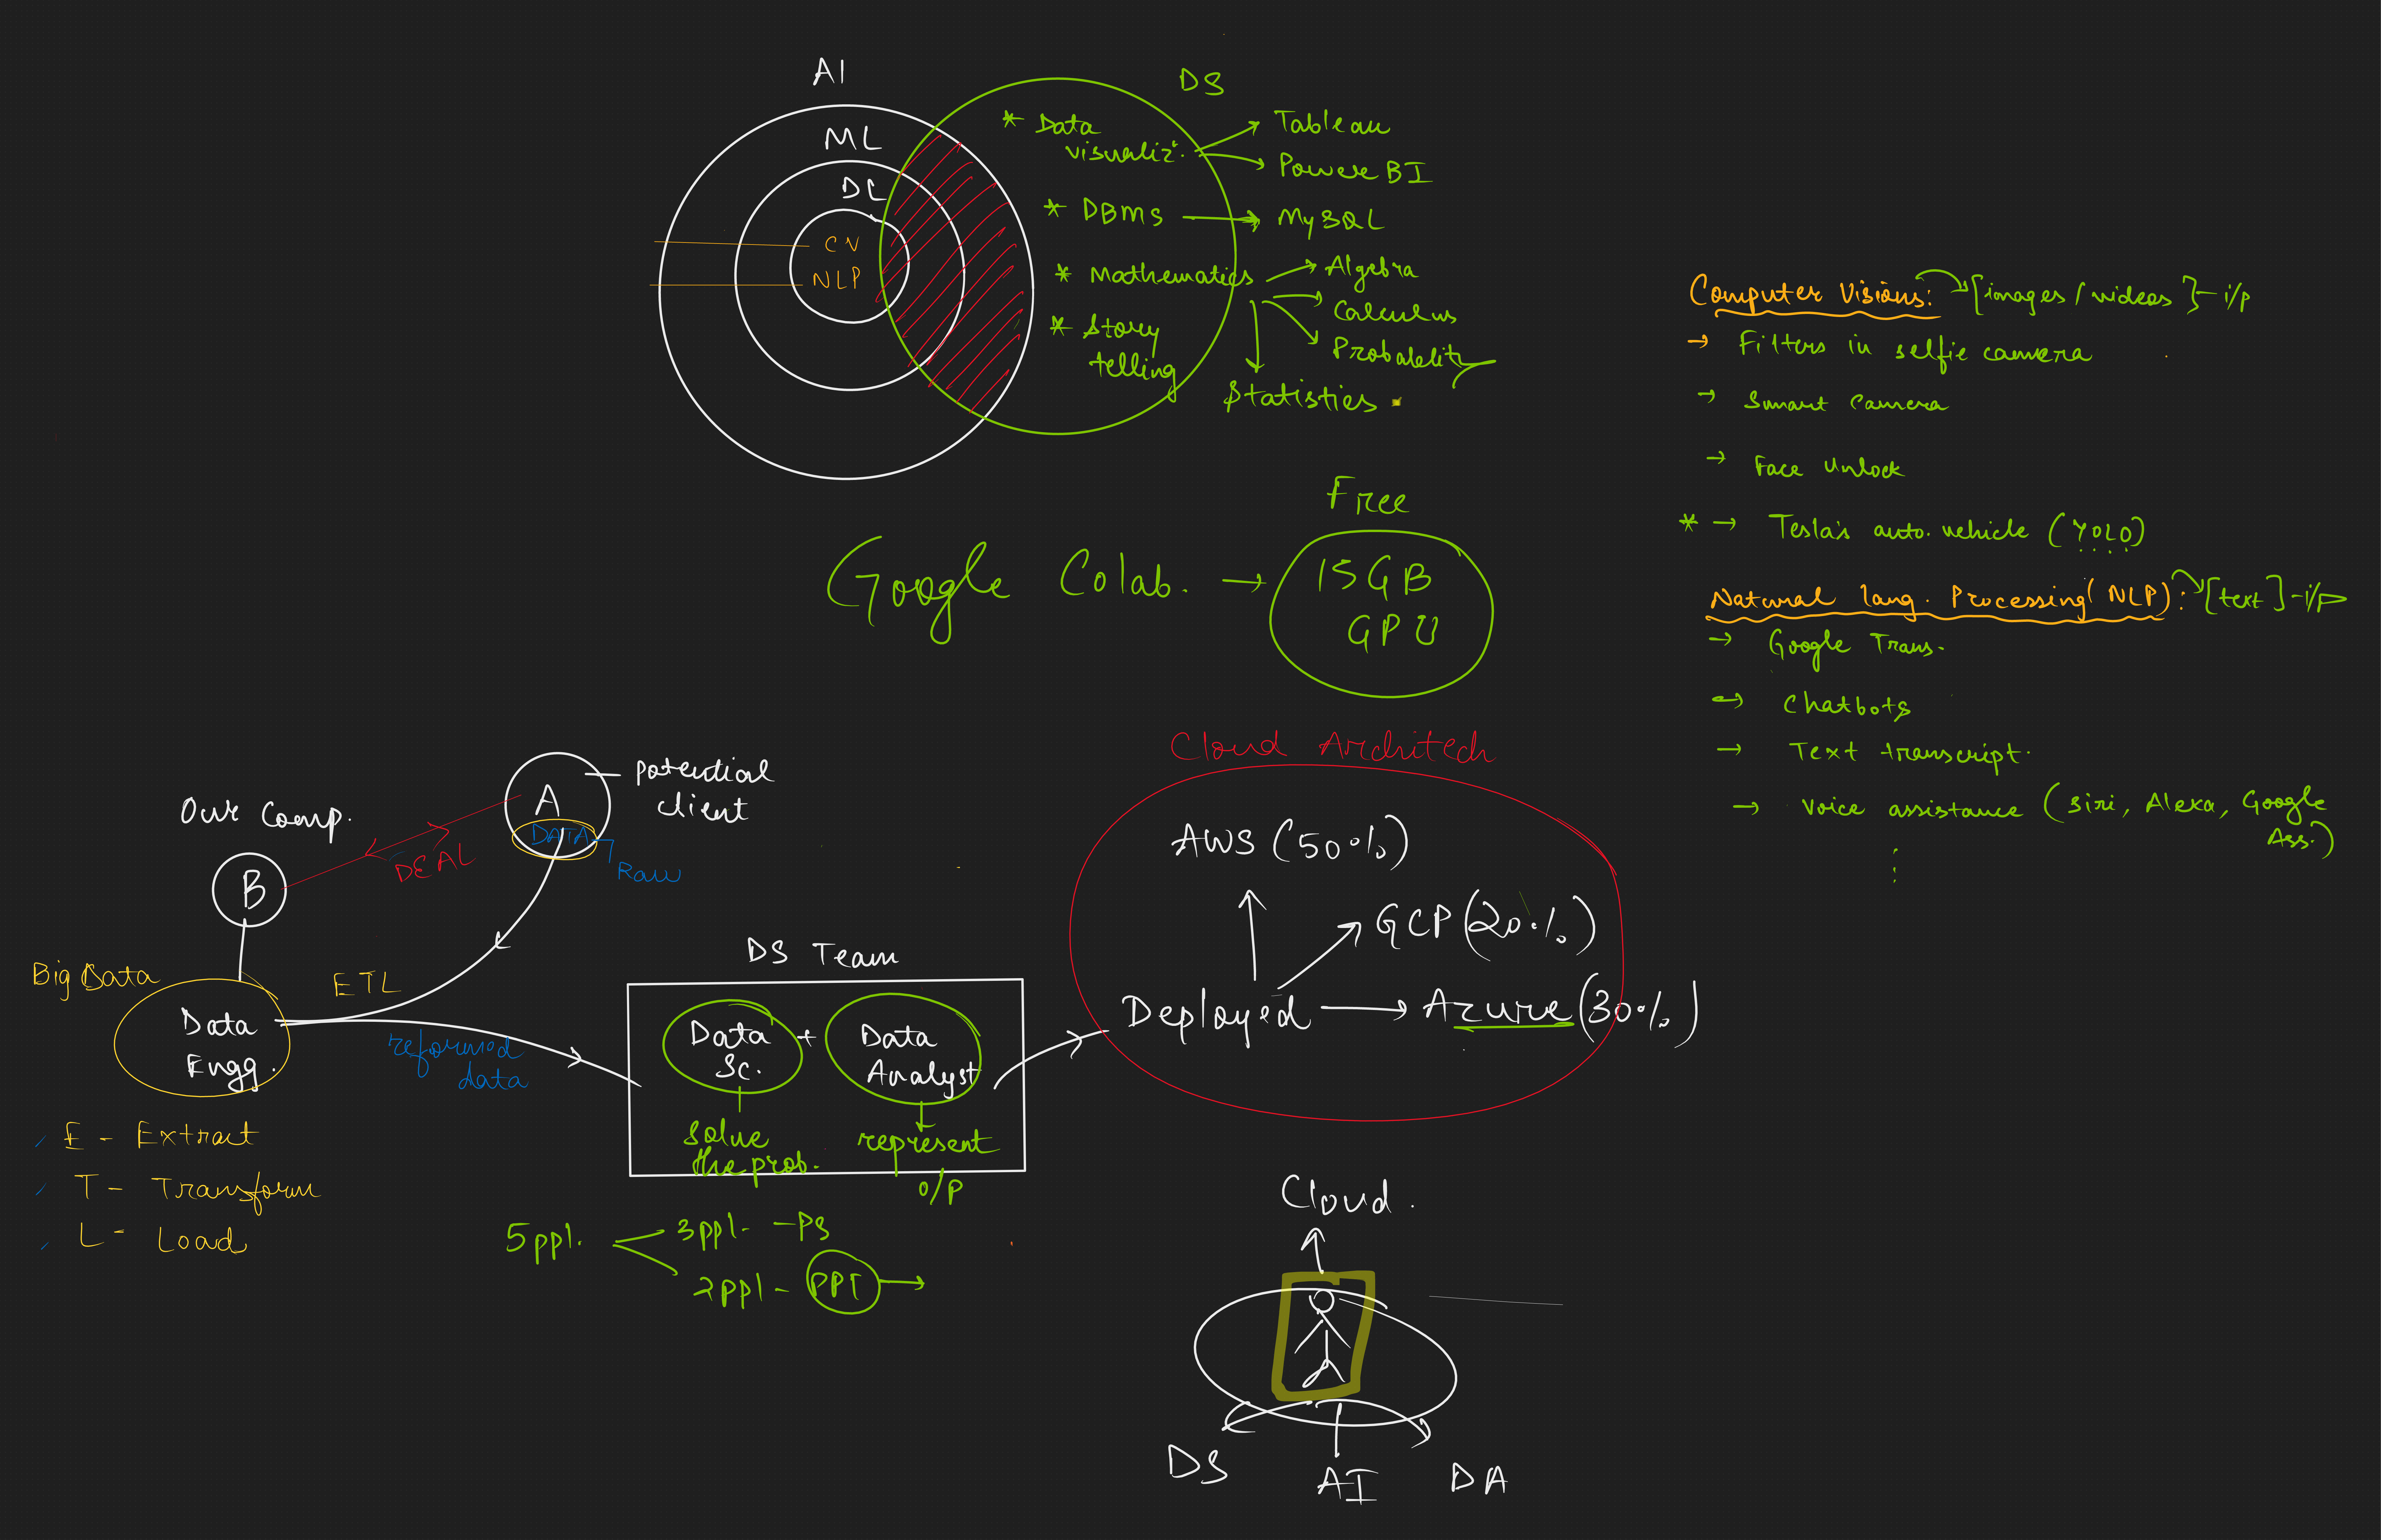 AI
ML
DL
CV
NLP
DS
* Data
visualiz.
Tableau
Power BI
* DBMS
MySQL
* Mathematics
Algebra
Calculus
Probability
Statistics
* Story
telling
Computer Visions: [images / videos] - i/p
→ Filters in selfie camera
→ Smart Camera
→ Face Unlock
* → Tesla's auto. vehicle (YOLO)
Natural lang. Processing (NLP): [text] - i/p
→ Google Trans.
→ Chatbots
→ Text transcript.
→ Voice assistance (Siri, Alexa, Google
Ass.)
Google Colab. →
Free
15GB
GPU
Our Comp.
B
DEAL
A
DATA
Raw
potential
client
Big Data
Data
Engg.
ETL
reformed
data
E - Extract
T - Transform
L - Load
DS Team
Data
Sc.
+
Data
Analyst
Solve
the prob.
represent
O/P
5 ppl.
3 ppl. - PS
2 ppl - PPT →
Cloud Architech
AWS (50%)
GCP (20%)
Deployed → Azure (30%)
Cloud.
DS
AI
DA